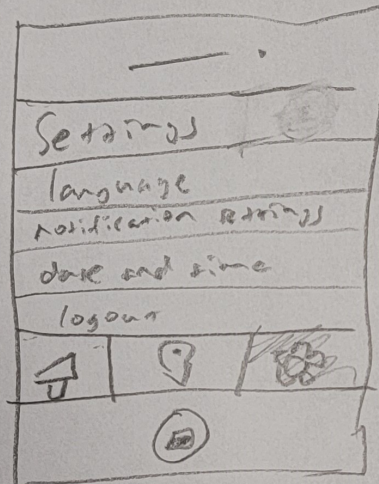 Settings
language
notification settings
date and time
logout